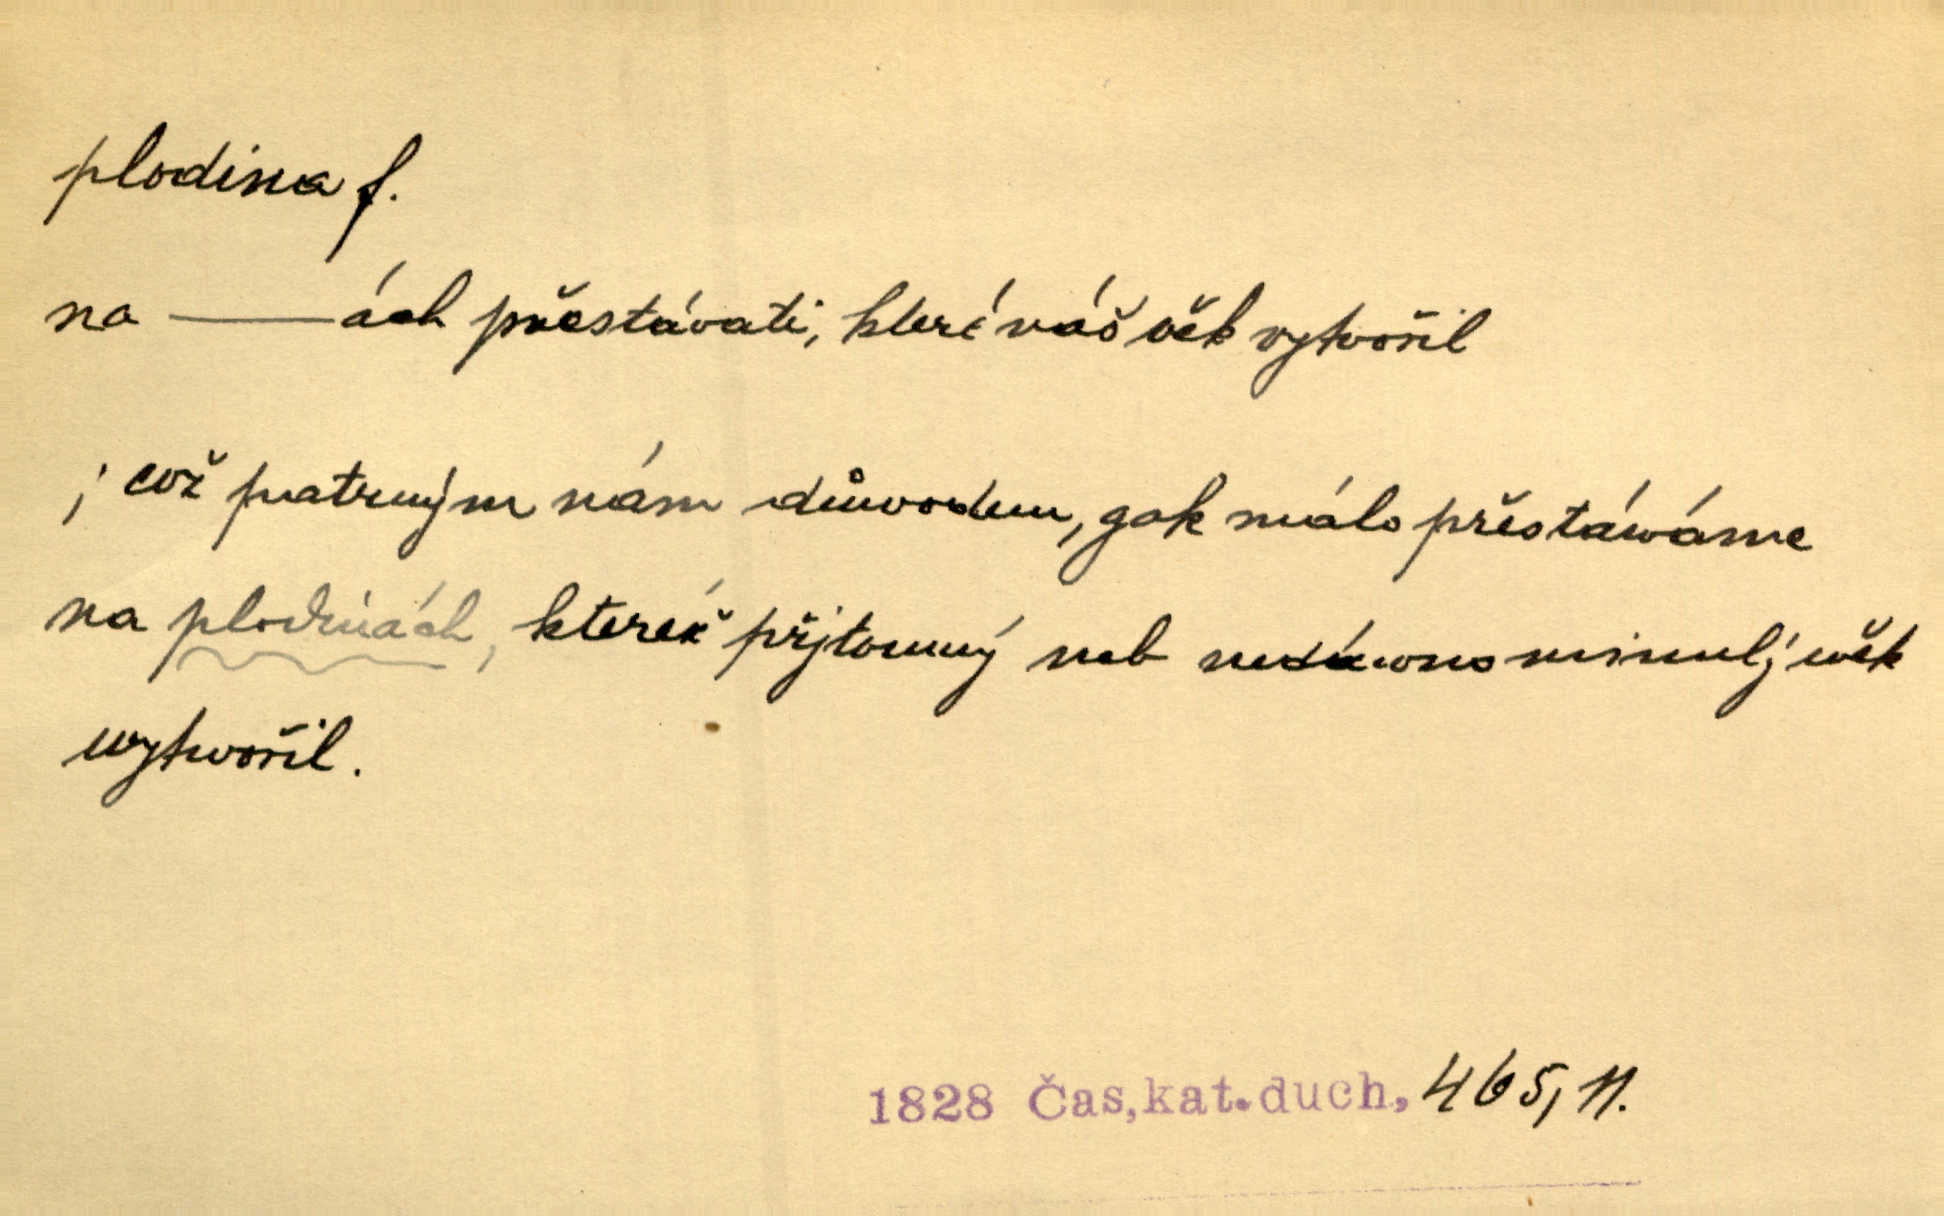 plodina f.
na —— ách přestávati, které náš věk vytvořil
; což patrným nám důwodem, gak málo přestáwáme
na plodinách, kteréž přjtomný neb nedáwno minulý wěk
wytwořil.
1828 Čas,kat.duch, 465, 11.